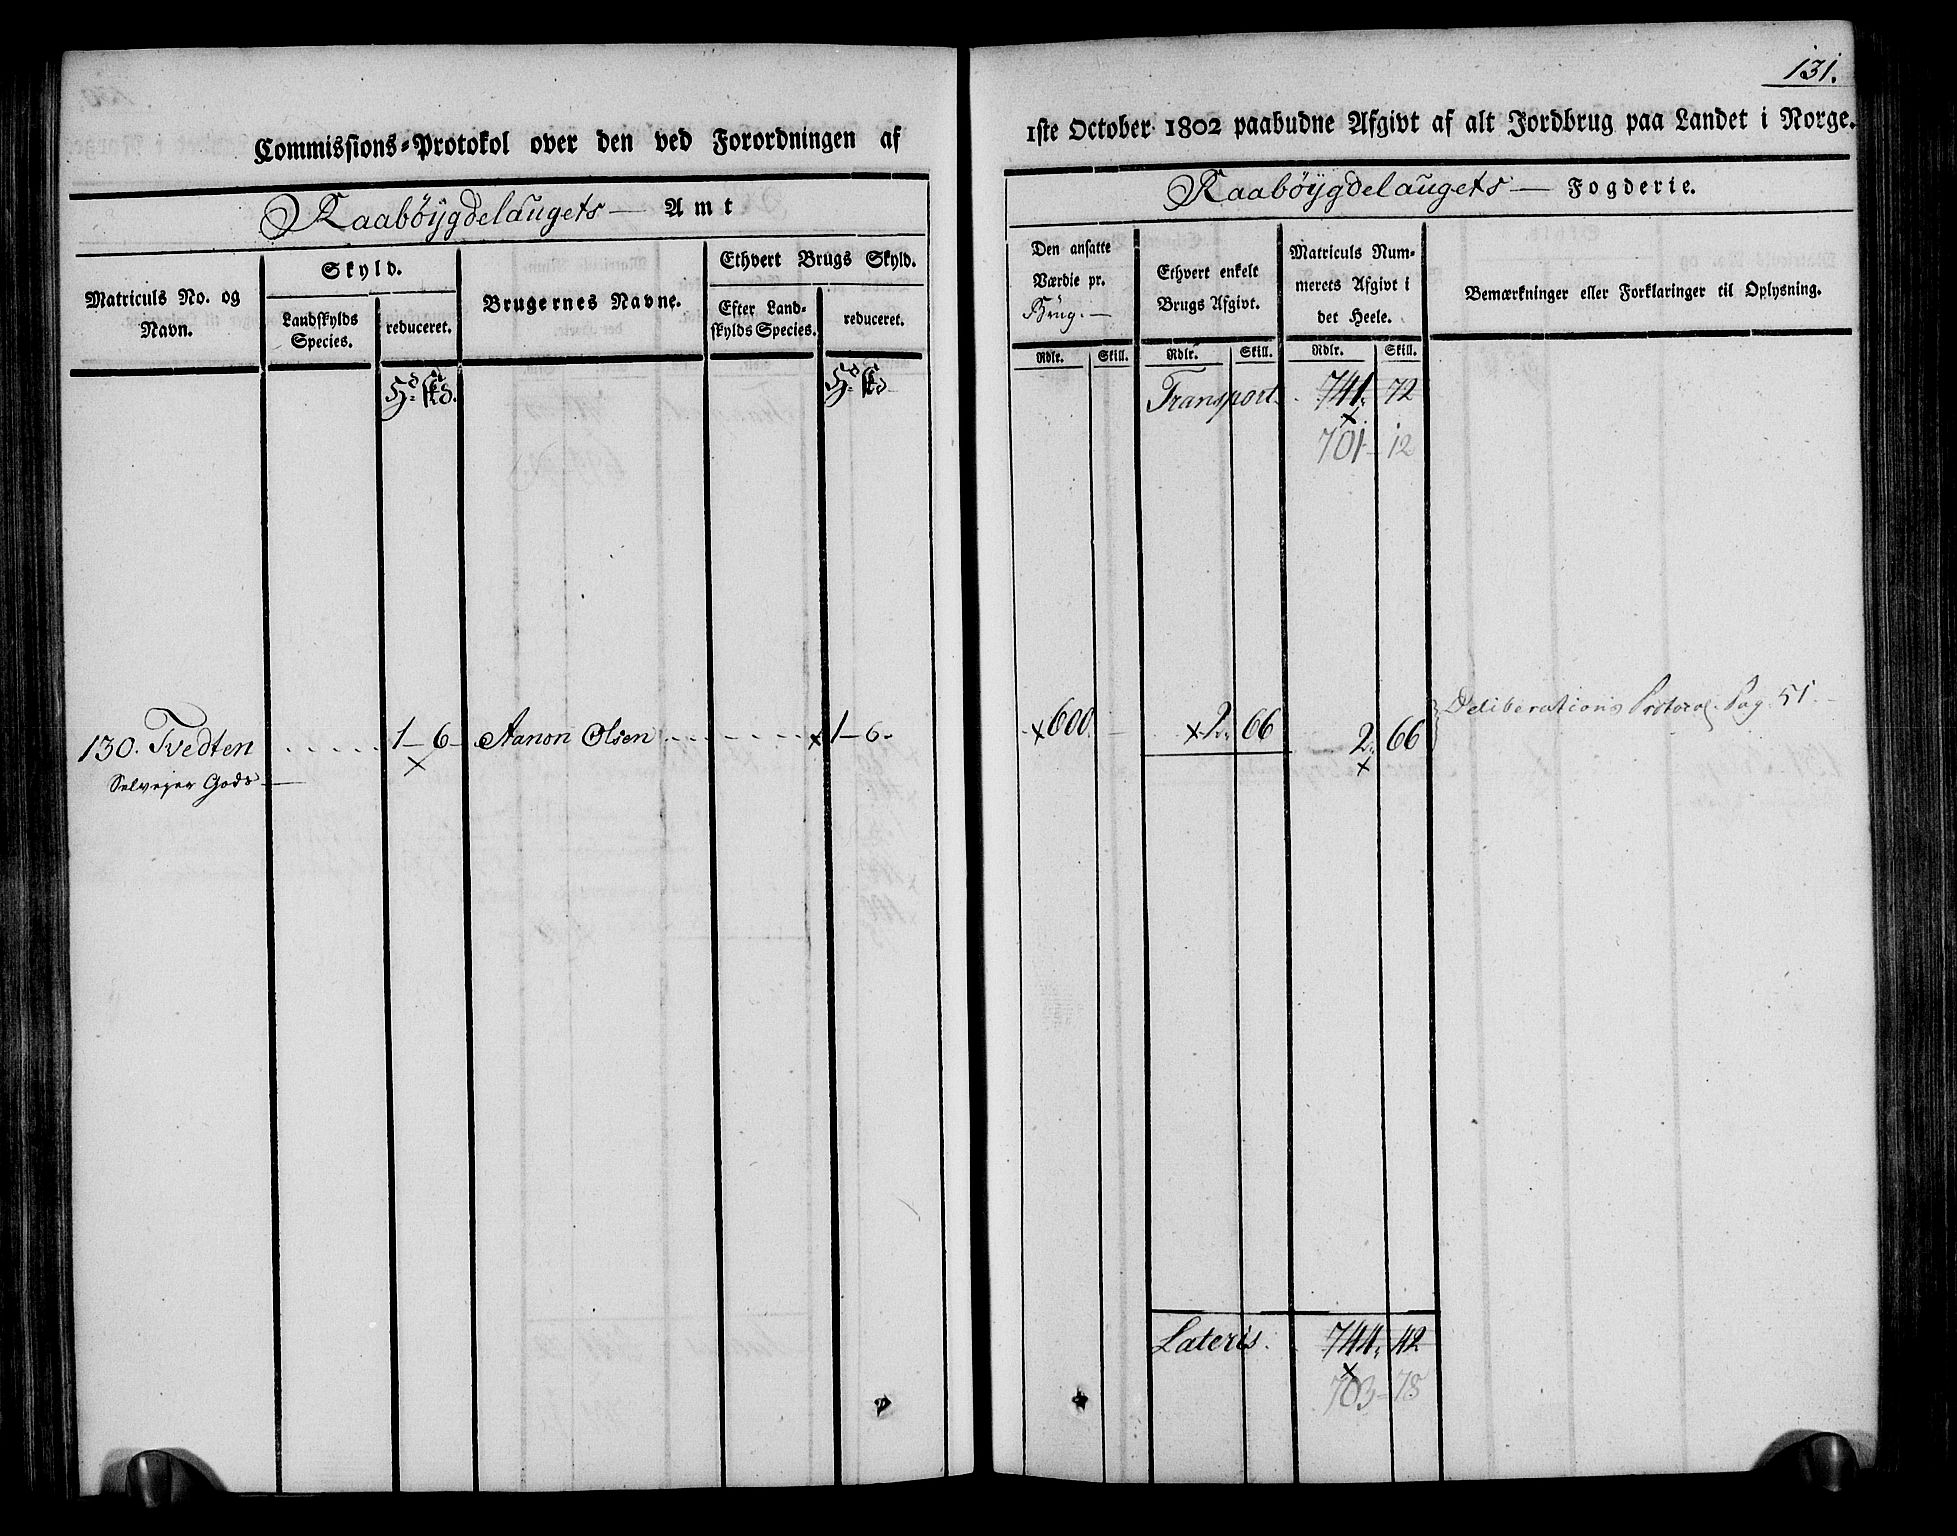 131.
Commissions-Protokol over den ved Forordningen af
1ste October 1802 paabudne Afgivt af alt Jordbrug paa Landet i Norge.
Raabøygdelaugets — Amt
Raabøygdelaugets — Fogderie.
Matriculs No. og Navn.
Skyld.
Landskylds Species.
reduceret.
Brugernes Navne.
Ethvert Brugs Skyld.
Efter Landskylds Species.
reduceret.
Den ansatte Værdie pr. Brug. —
Ethvert enkelt Brugs Afgivt.
Matriculs Nummerets Afgivt i det Heele.
Bemærkninger eller Forklaringer til Oplysning.
Rdlr. Skill. Rdlr. Skill. Rdlr. Skill.
Transport. 741. 72
701 - 12
130. Tvedten 1 - 6 - Aanon Olsen x 1 - 6. x 600. x 2. 66 2. 66 Deliberations Protocol. Pag. 51.
x x
Selvejer Gods —
Lateris. 744. 42
x
703 - 78